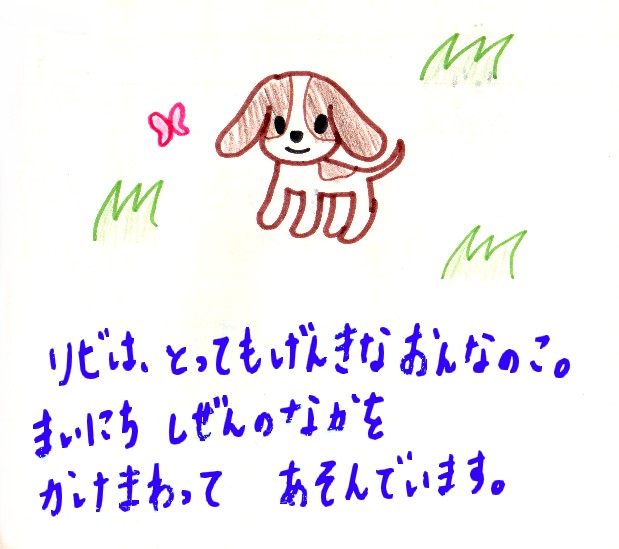 リビは、とってもげんきなおんなのこ。
まいにち しぜんのなかを
かけまわって あそんでいます。